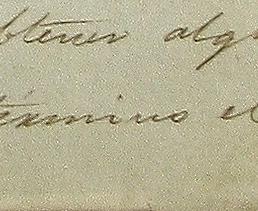 btener alg
términos el